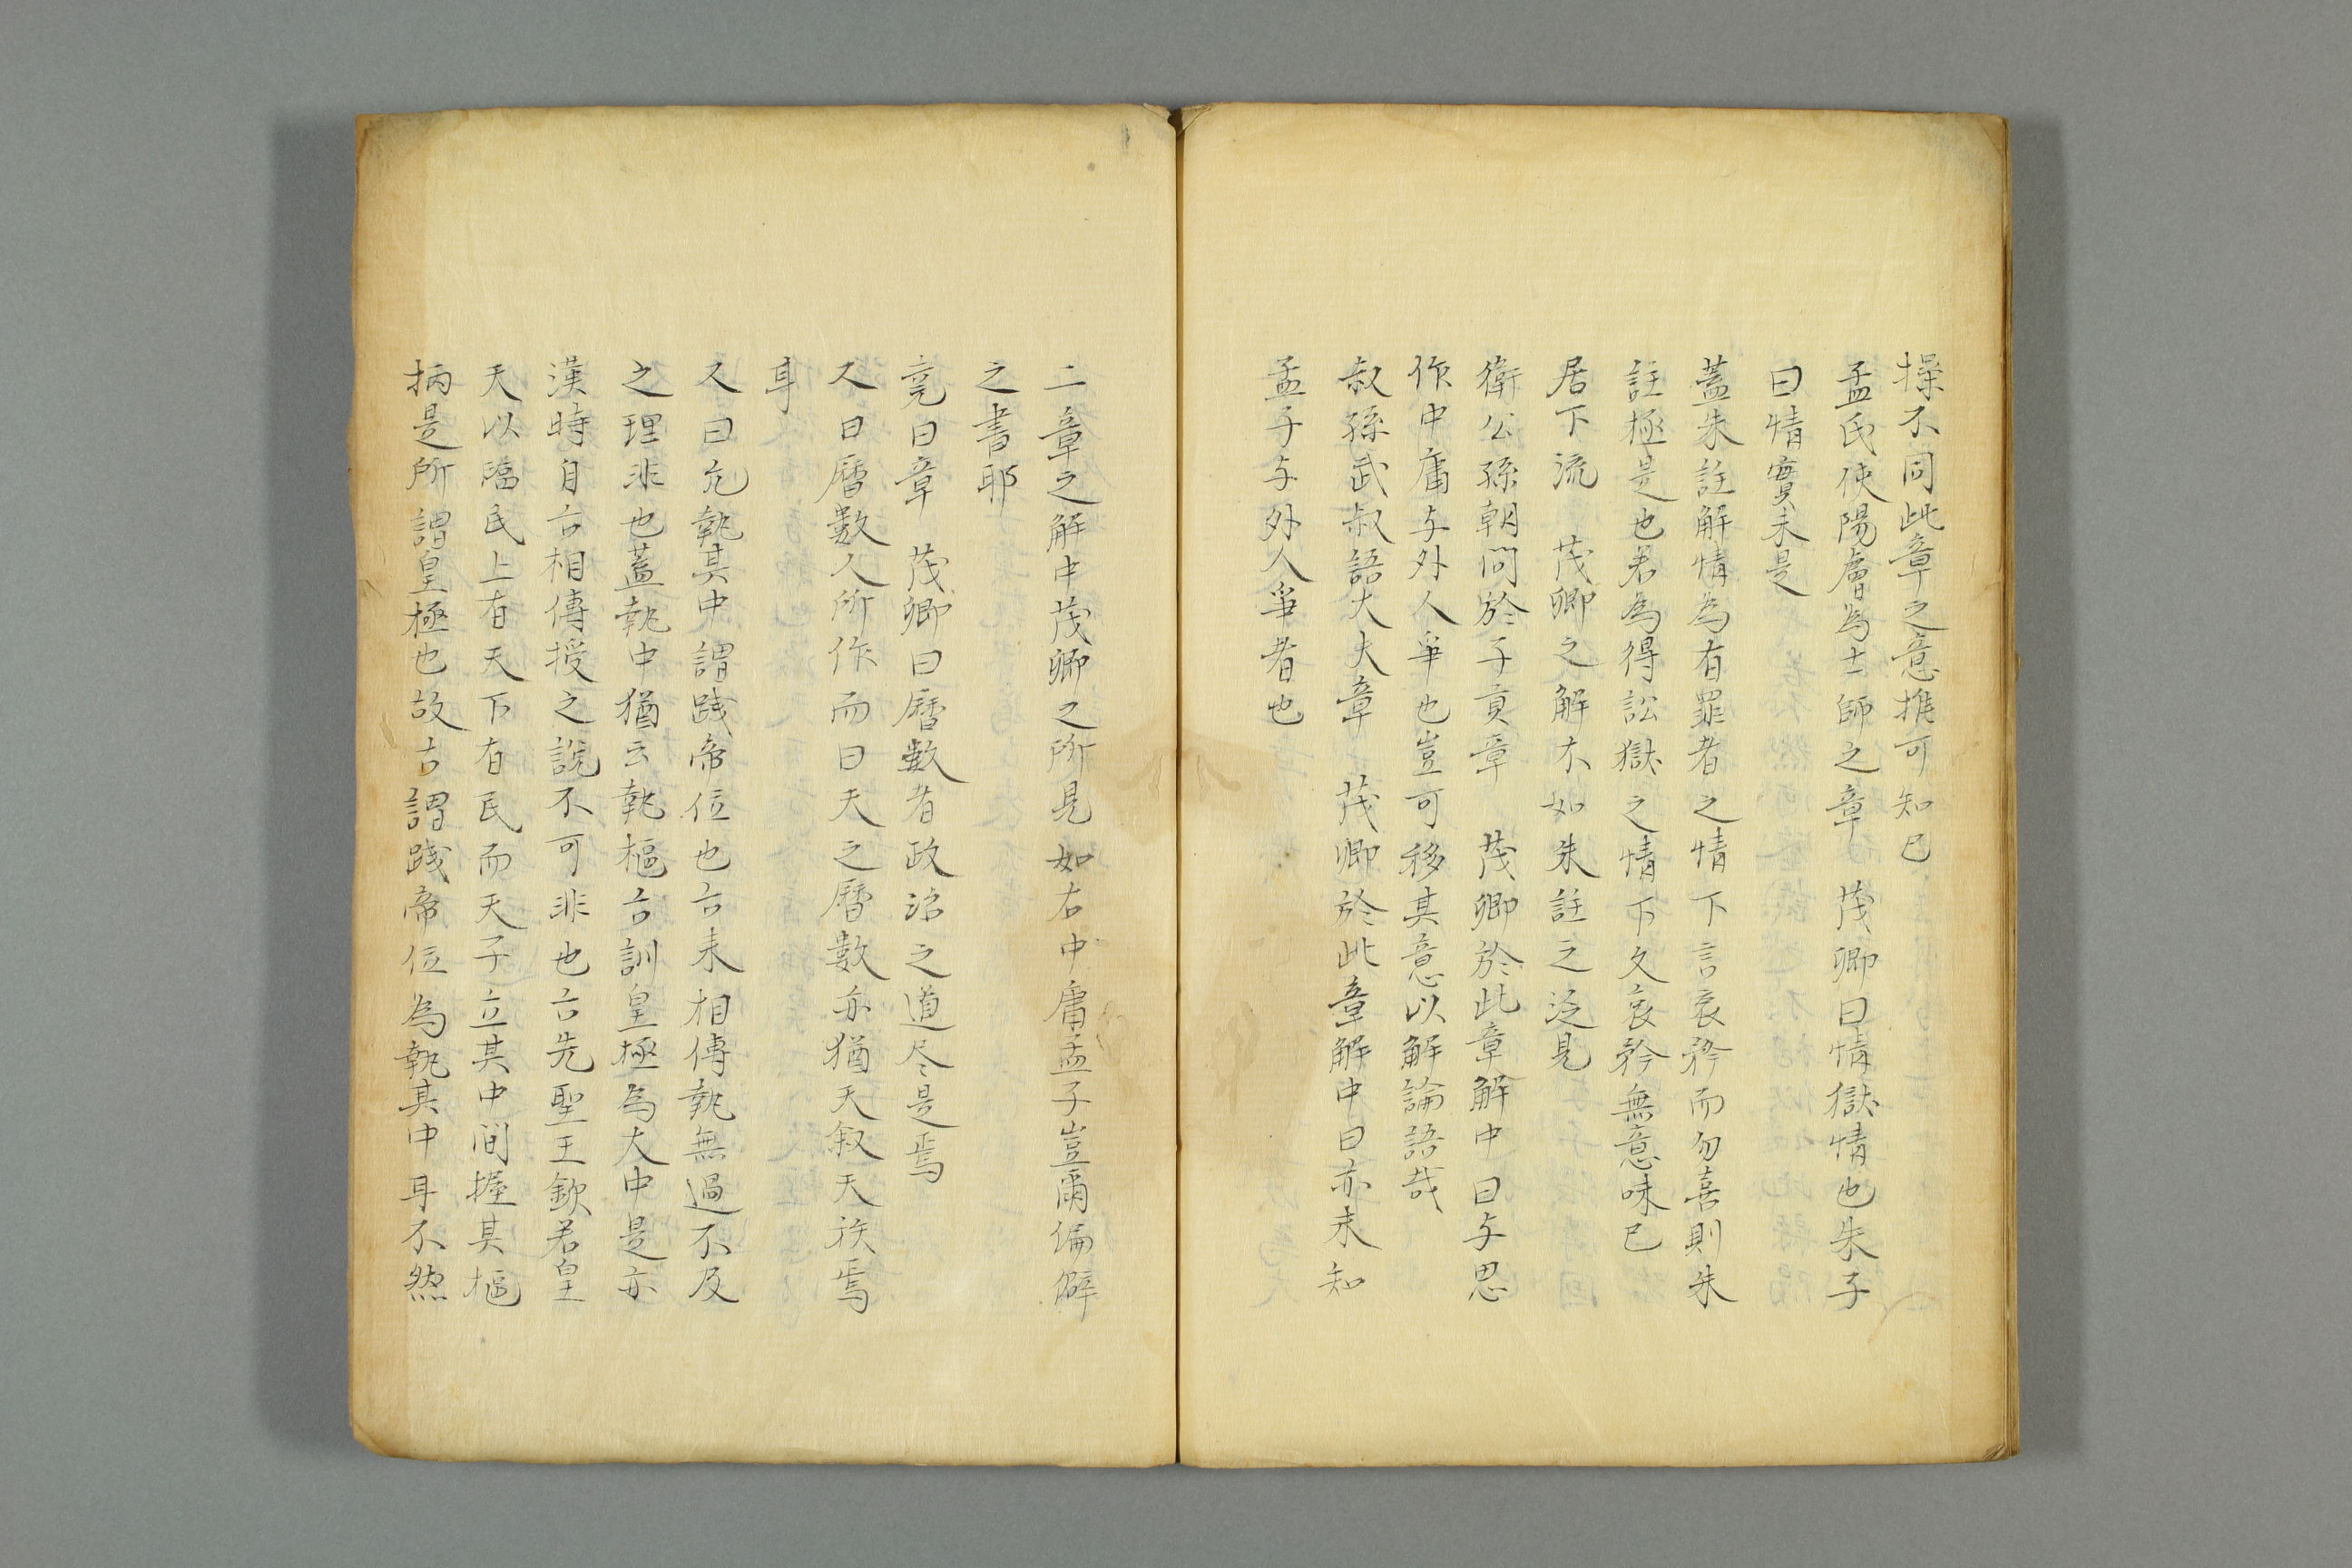 操不同此章之意推可知已
孟氏使陽膚為士師之章　茂卿曰情獄情也朱子
曰情實未是
蓋朱註解情為有罪者之情下言哀矜而勿喜則朱
註極是也若為得訟獄之情下文哀矜無意味已
居下流　茂卿之解不如朱註之泛見
衛公孫朝問於子貢章　茂卿於此章解中曰与思
作中庸与外人爭也豈可移其意以解論語哉
叔孫武叔語大夫章　茂卿於此章解中曰亦未知
孟子与外人爭者也
二章之解中茂卿之所見如右中庸孟子豈爾偏僻
之書耶
堯曰章　茂卿曰曆數者政治之道尽是焉
又曰曆數人所作而曰天之曆數亦猶天叙天秩焉
耳
又曰允執其中謂踐帝位也古来相傳執無過不及
之理非也蓋執中猶云執樞古訓皇極為大中是亦
漢時自古相傳授之說不可非也古先聖王欽若皇
天以臨民上有天下有民而天子立其中間握其樞
柄是所謂皇極也故古謂踐帝位為執其中耳不然